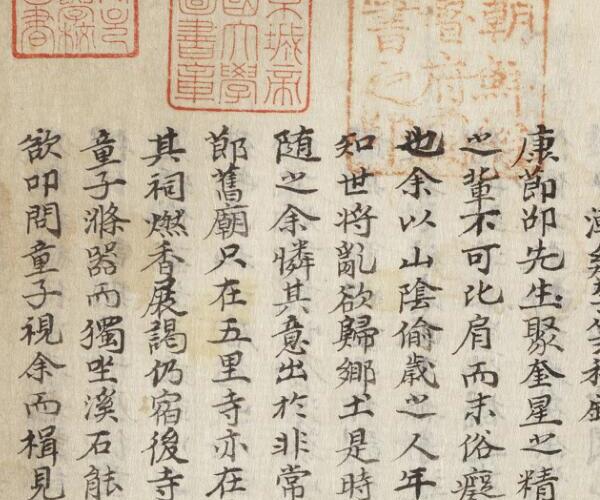 朝鮮
督府
書之印
城帝
國大學
圖書章
康節邵先生聚奎星之精
之輩不可比肩而末俗癡
也余以山陰偷歲之人年
知世将亂欲歸鄉土是時
随之余憐其意出於非常
節舊廟只在五里寺亦在
其祠燃香展謁仍宿後寺
童子滌器而獨坐溪石能
欲叩問童子視余而楫見